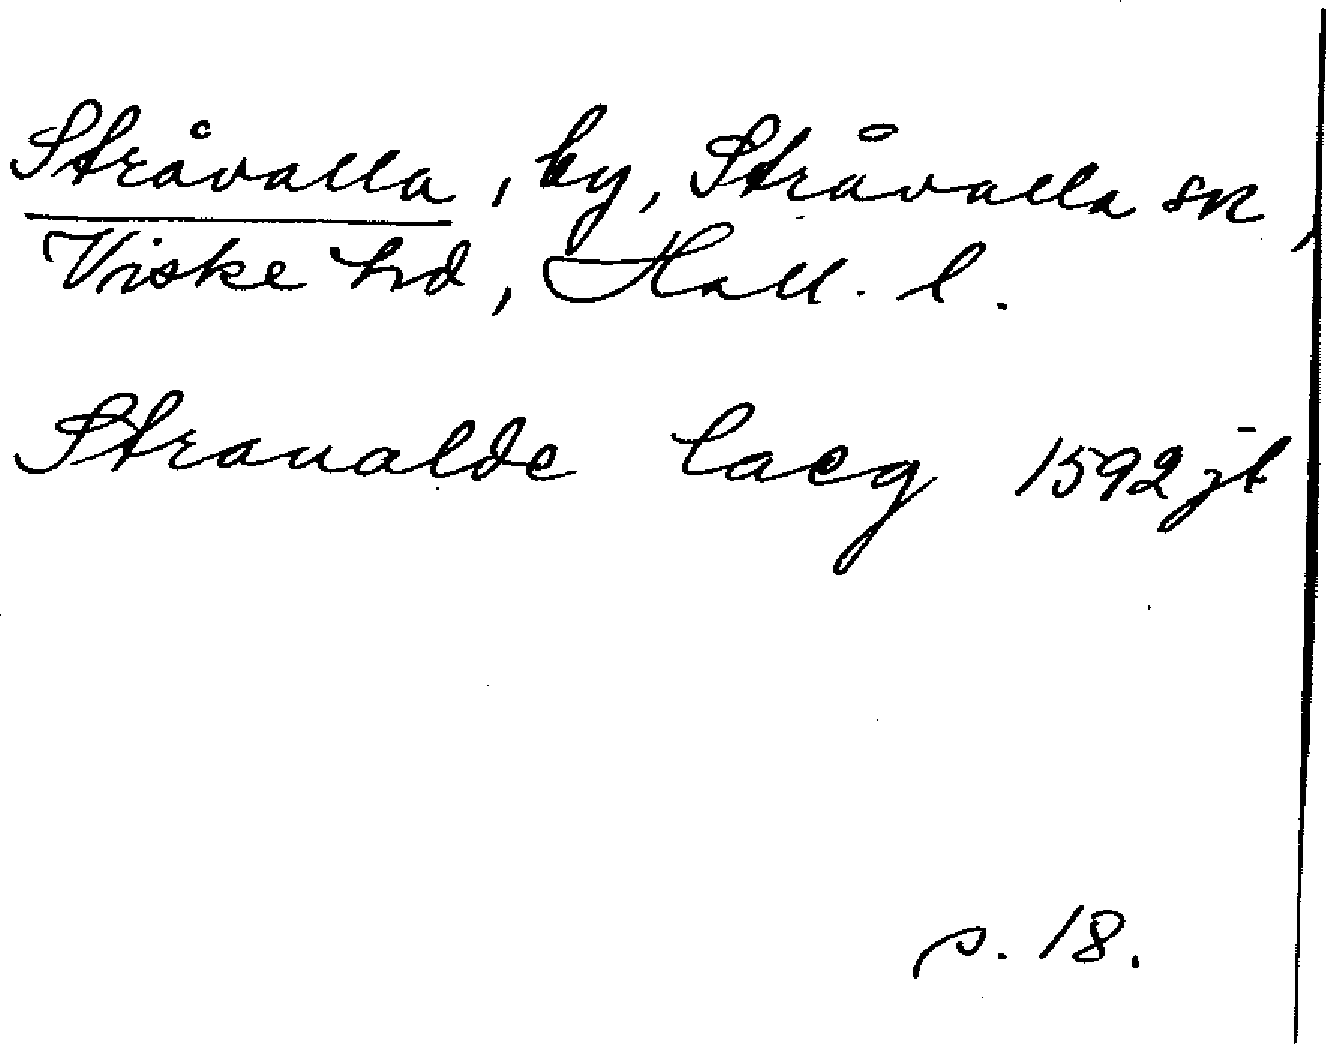 Stråvalla, by, Stråvalla sn,
Viske hd, Hall. l.
Straualde laeg 1592 jb
s. 18.